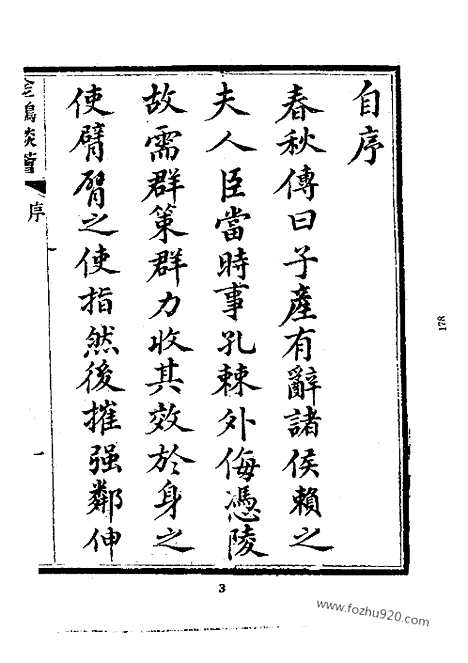 自序
春秋傳曰子產有辭諸侯賴之
夫人臣當時事孔棘外侮憑陵
故需群策群力收其效於身之
使臂臂之使指然後摧强鄰伸
序
一
178
3
www.fozhu920.com